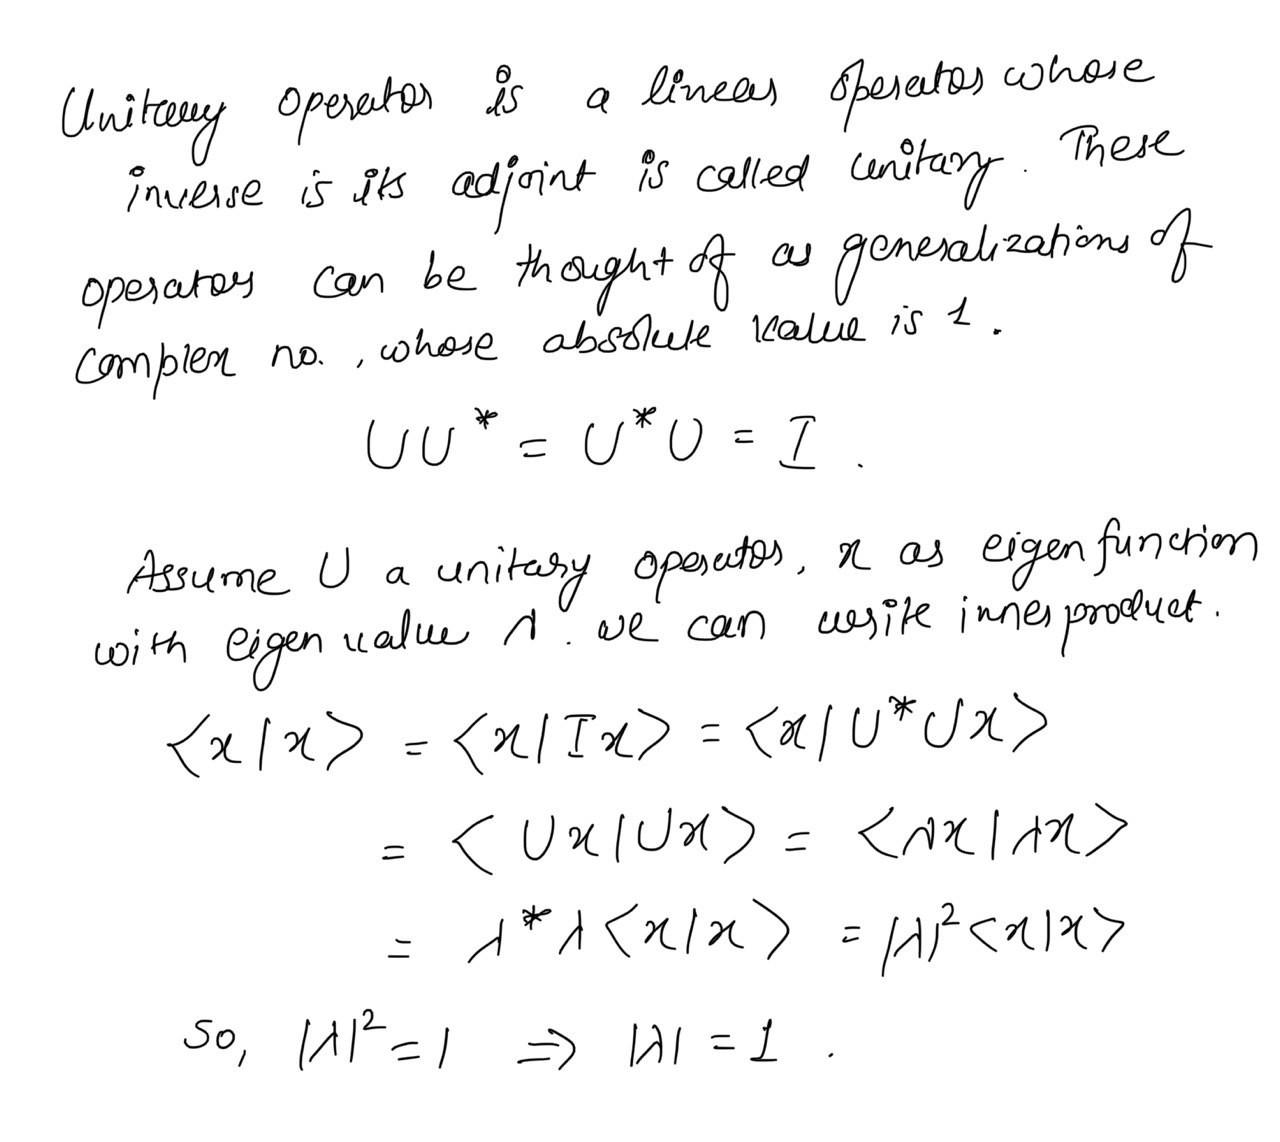 Unitary operator is a linear operator whose
inverse is its adjoint is called unitary. These
operators can be thought of as generalizations of
complex no., whose absolute value is 1.
UU* = U*U = I.
Assume U a unitary operator, x as eigen function
with eigen value λ. we can write inner product.
<x|x> = <x|Ix> = <x|U*Ux>
= <Ux|Ux> = <λx|λx>
= λ*λ<x|x> = |λ|²<x|x>
So, |λ|² = 1 ⇒ |λ| = 1.